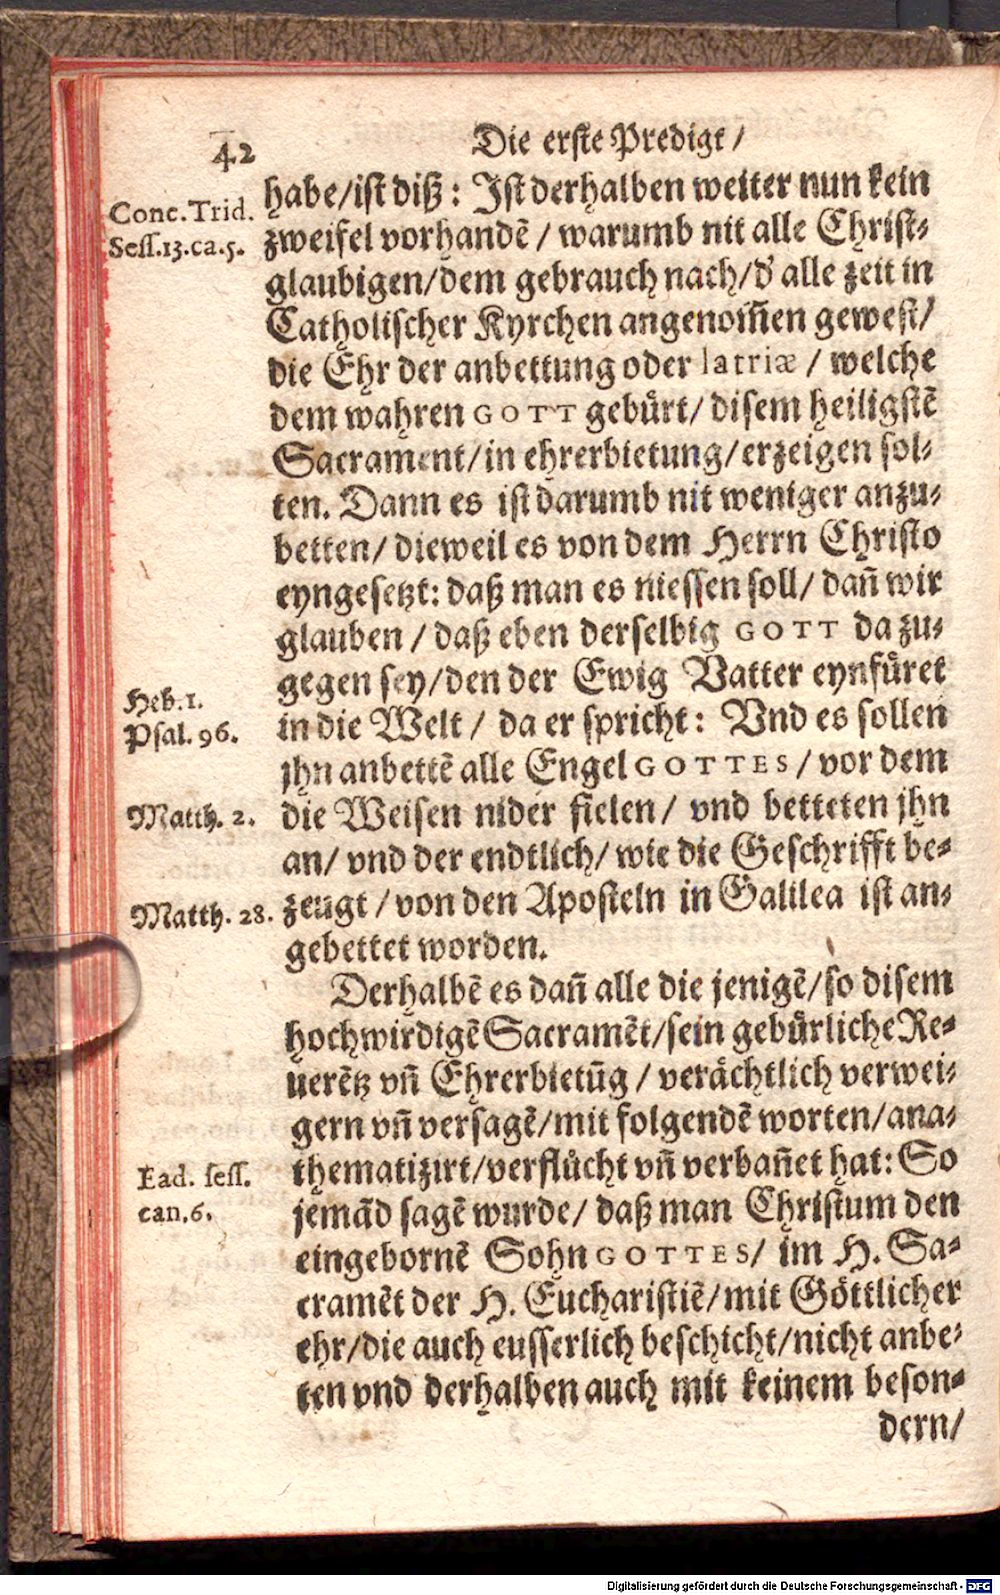 42
Die erste Predigt /
habe/ist diß : Ist derhalben weiter nun kein
Conc. Trid.
Sess.13.ca.5.
zweifel vorhandẽ / warumb nit alle Christ-
glaubigen/dem gebrauch nach/d' alle zeit in
Catholischer Kyrchen angenom̃en gewest/
die Ehr der anbettung oder latriæ / welche
dem wahren GOTT gebürt/ disem heiligstẽ
Sacrament/in ehrerbietung/erzeigen sol-
ten. Dann es ist darumb nit weniger anzu-
betten/ dieweil es von dem Herrn Christo
eyngesetzt: daß man es niessen soll/ dañ wir
glauben / daß eben derselbig GOTT da zu-
gegen sey/den der Ewig Vatter eynfüret
Heb.1.
in die Welt / da er spricht : Vnd es sollen
Psal. 96.
jhn anbettẽ alle Engel GOTTES/ vor dem
Matth. 2.
die Weisen nider fielen/ vnd betteten jhn
an/ vnd der endtlich/ wie die Geschrifft be-
Matth. 28.
zeugt / von den Aposteln in Galilea ist an-
gebettet worden.
Derhalbẽ es dañ alle die jenigẽ/so disem
hochwirdigẽ Sacramẽt/sein gebürliche Re-
uerẽtz vñ Ehrerbietũg / verächtlich verwei-
gern vñ versagẽ/mit folgendẽ worten/ana-
Ead. sess.
can.6.
thematizirt/verflücht vñ verbañet hat: So
jemãd sagẽ wurde/ daß man Christum den
eingebornẽ Sohn GOTTES/ im H. Sa-
cramẽt der H. Eucharistiẽ/mit Göttlicher
ehr/die auch eusserlich beschicht/nicht anbe-
ten vnd derhalben auch mit keinem beson-
dern/
Digitalisierung gefördert durch die Deutsche Forschungsgemeinschaft - DFG